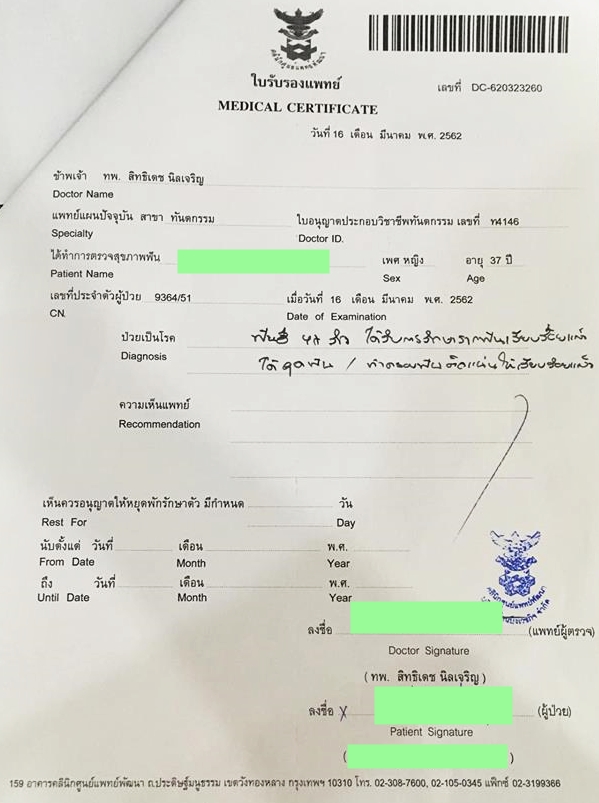 คลินิกศูนย์แพทย์พัฒนา
ใบรับรองแพทย์
เลขที่ DC-620323260
MEDICAL CERTIFICATE
วันที่ 16 เดือน มีนาคม พ.ศ. 2562
ข้าพเจ้า ทพ. สิทธิเดช นิลเจริญ
Doctor Name
แพทย์แผนปัจจุบัน สาขา ทันตกรรม ใบอนุญาตประกอบวิชาชีพทันตกรรม เลขที่ ท4146
Specialty Doctor ID.
ได้ทำการตรวจสุขภาพฟัน เพศ หญิง อายุ 37 ปี
Patient Name Sex Age
เลขที่ประจำตัวผู้ป่วย 9364/51 เมื่อวันที่ 16 เดือน มีนาคม พ.ศ. 2562
CN. Date of Examination
ป่วยเป็นโรค ฟันซี่ ได้รับการรักษารากฟันเรียบร้อยแล้ว
Diagnosis ได้อุดฟัน / ให้เรียบร้อยแล้ว
ความเห็นแพทย์
Recommendation
เห็นควรอนุญาตให้หยุดพักรักษาตัว มีกำหนด วัน
Rest For Day
นับตั้งแต่ วันที่ เดือน พ.ศ.
From Date Month Year
ถึง วันที่ เดือน พ.ศ.
Until Date Month Year
คลินิกศูนย์แพทย์พัฒนา
ลงชื่อ (แพทย์ผู้ตรวจ)
Doctor Signature
( ทพ. สิทธิเดช นิลเจริญ )
ลงชื่อ x (ผู้ป่วย)
Patient Signature
( )
159 อาคารคลินิกศูนย์แพทย์พัฒนา ถ.ประดิษฐ์มนูธรรม เขตวังทองหลาง กรุงเทพฯ 10310 โทร. 02-308-7600, 02-105-0345 แฟ็กซ์ 02-3199366